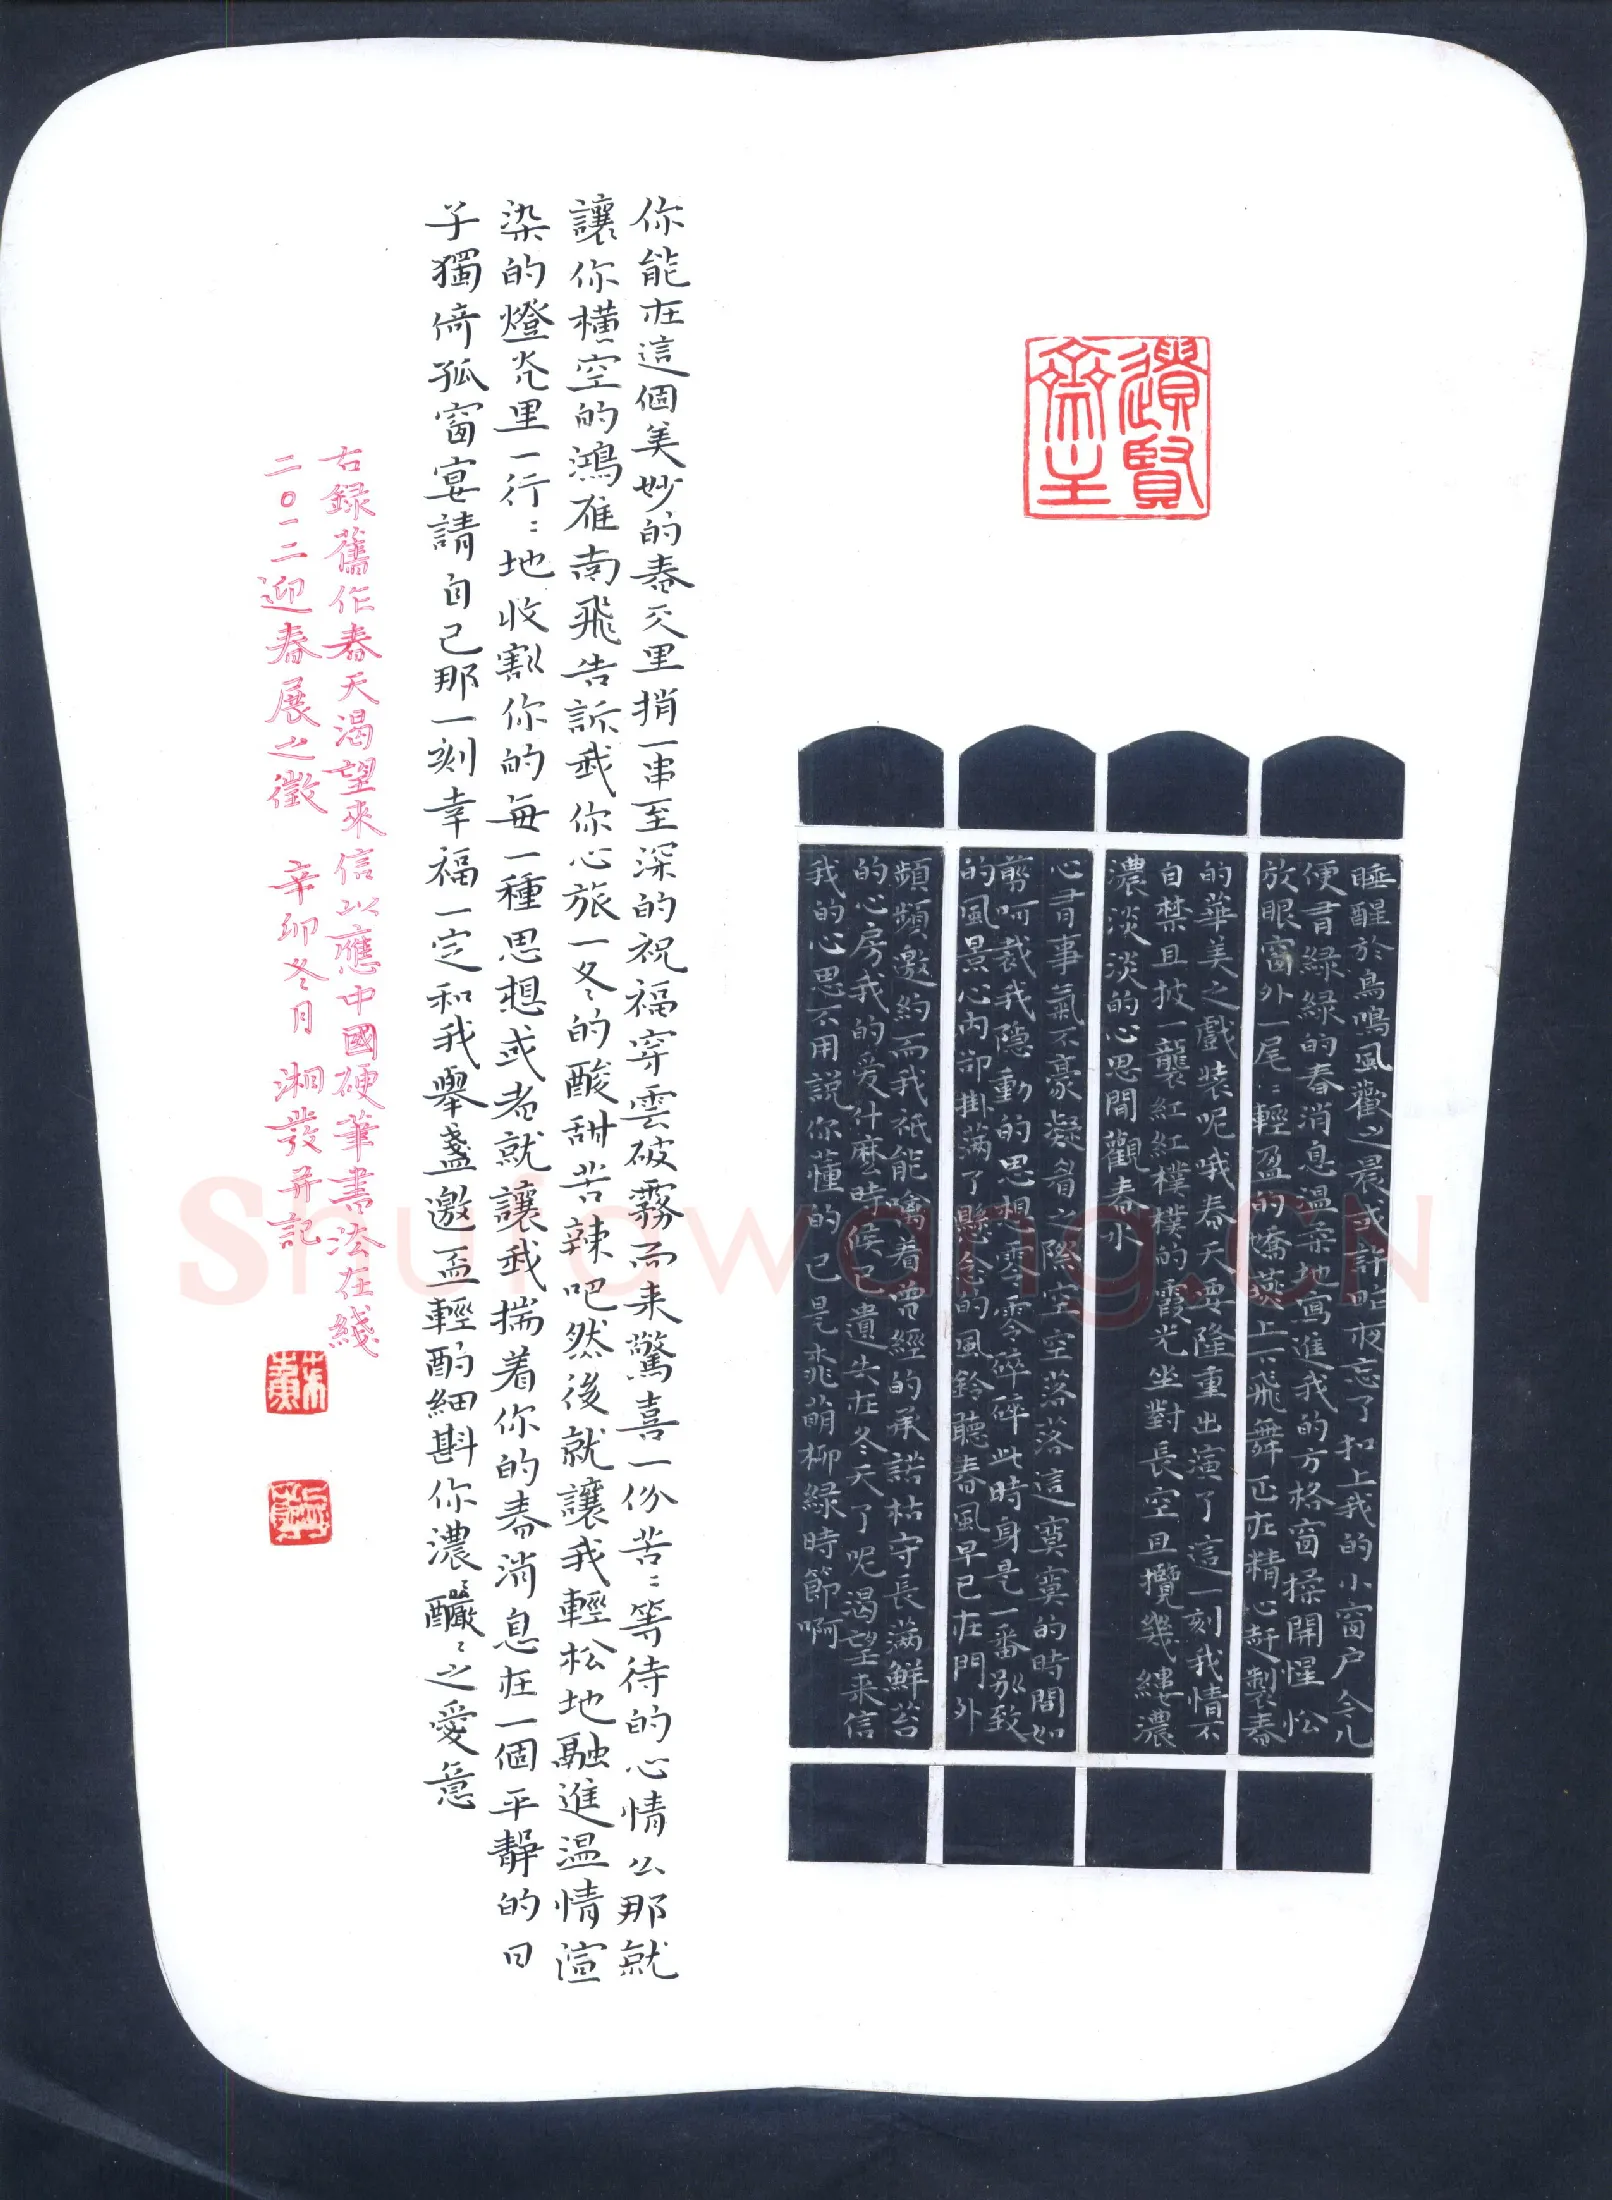 遺賢
齋主
睡醒於鳥鳴風歡之晨或許昨夜忘了扣上我的小窗户令几
便有綠綠的春消息温柔地寫進我的方格窗揉開惺忪
放眼窗外一尾:輕盈的嬌燕上下飛舞正在精心赶製春
的華美之戲装呢哦春天要隆重出演了這一刻我情不
自禁且披一襲紅紅樸樸的霞光坐對長空且攬幾縷濃
濃淡淡的心思閒觀春水
心有事氣不豪凝眉之際空空落落這寞寞的時間如
剪呵裁我隐動的思想零零碎碎此時身是一番别致
的風景心内却掛满了懸念的風鈴聽春風早已在門外
頻頻邀約而我衹能噙着曾經的承諾枯守長满鮮苔
的心房我的爱什麽時候已遺失在冬天了呢渴望来信
我的心思不用説你董的已是桃萌柳緑時節啊
你能在這個美妙的春天里捎一串至深的祝福穿雲破霧而来驚喜一份苦:等待的心情公那就
讓你横空的鴻雁南飛告訴我你心旅一冬的酸甜苦辣吧然後就讓我輕松地融進温情渲
染的燈光里一行:地收割你的每一種思想或者就讓我揣着你的春消息在一個平靜的日
子獨倚孤窗宴請自己那一刻幸福一定和我舉盞邀盃輕酌細斟你濃:釅:之愛意
右録舊作春天渴望來信以應中國硬筆書法在綫
二〇一二迎春展之徵 辛卯冬月 湘發并記
Shufawang.CN